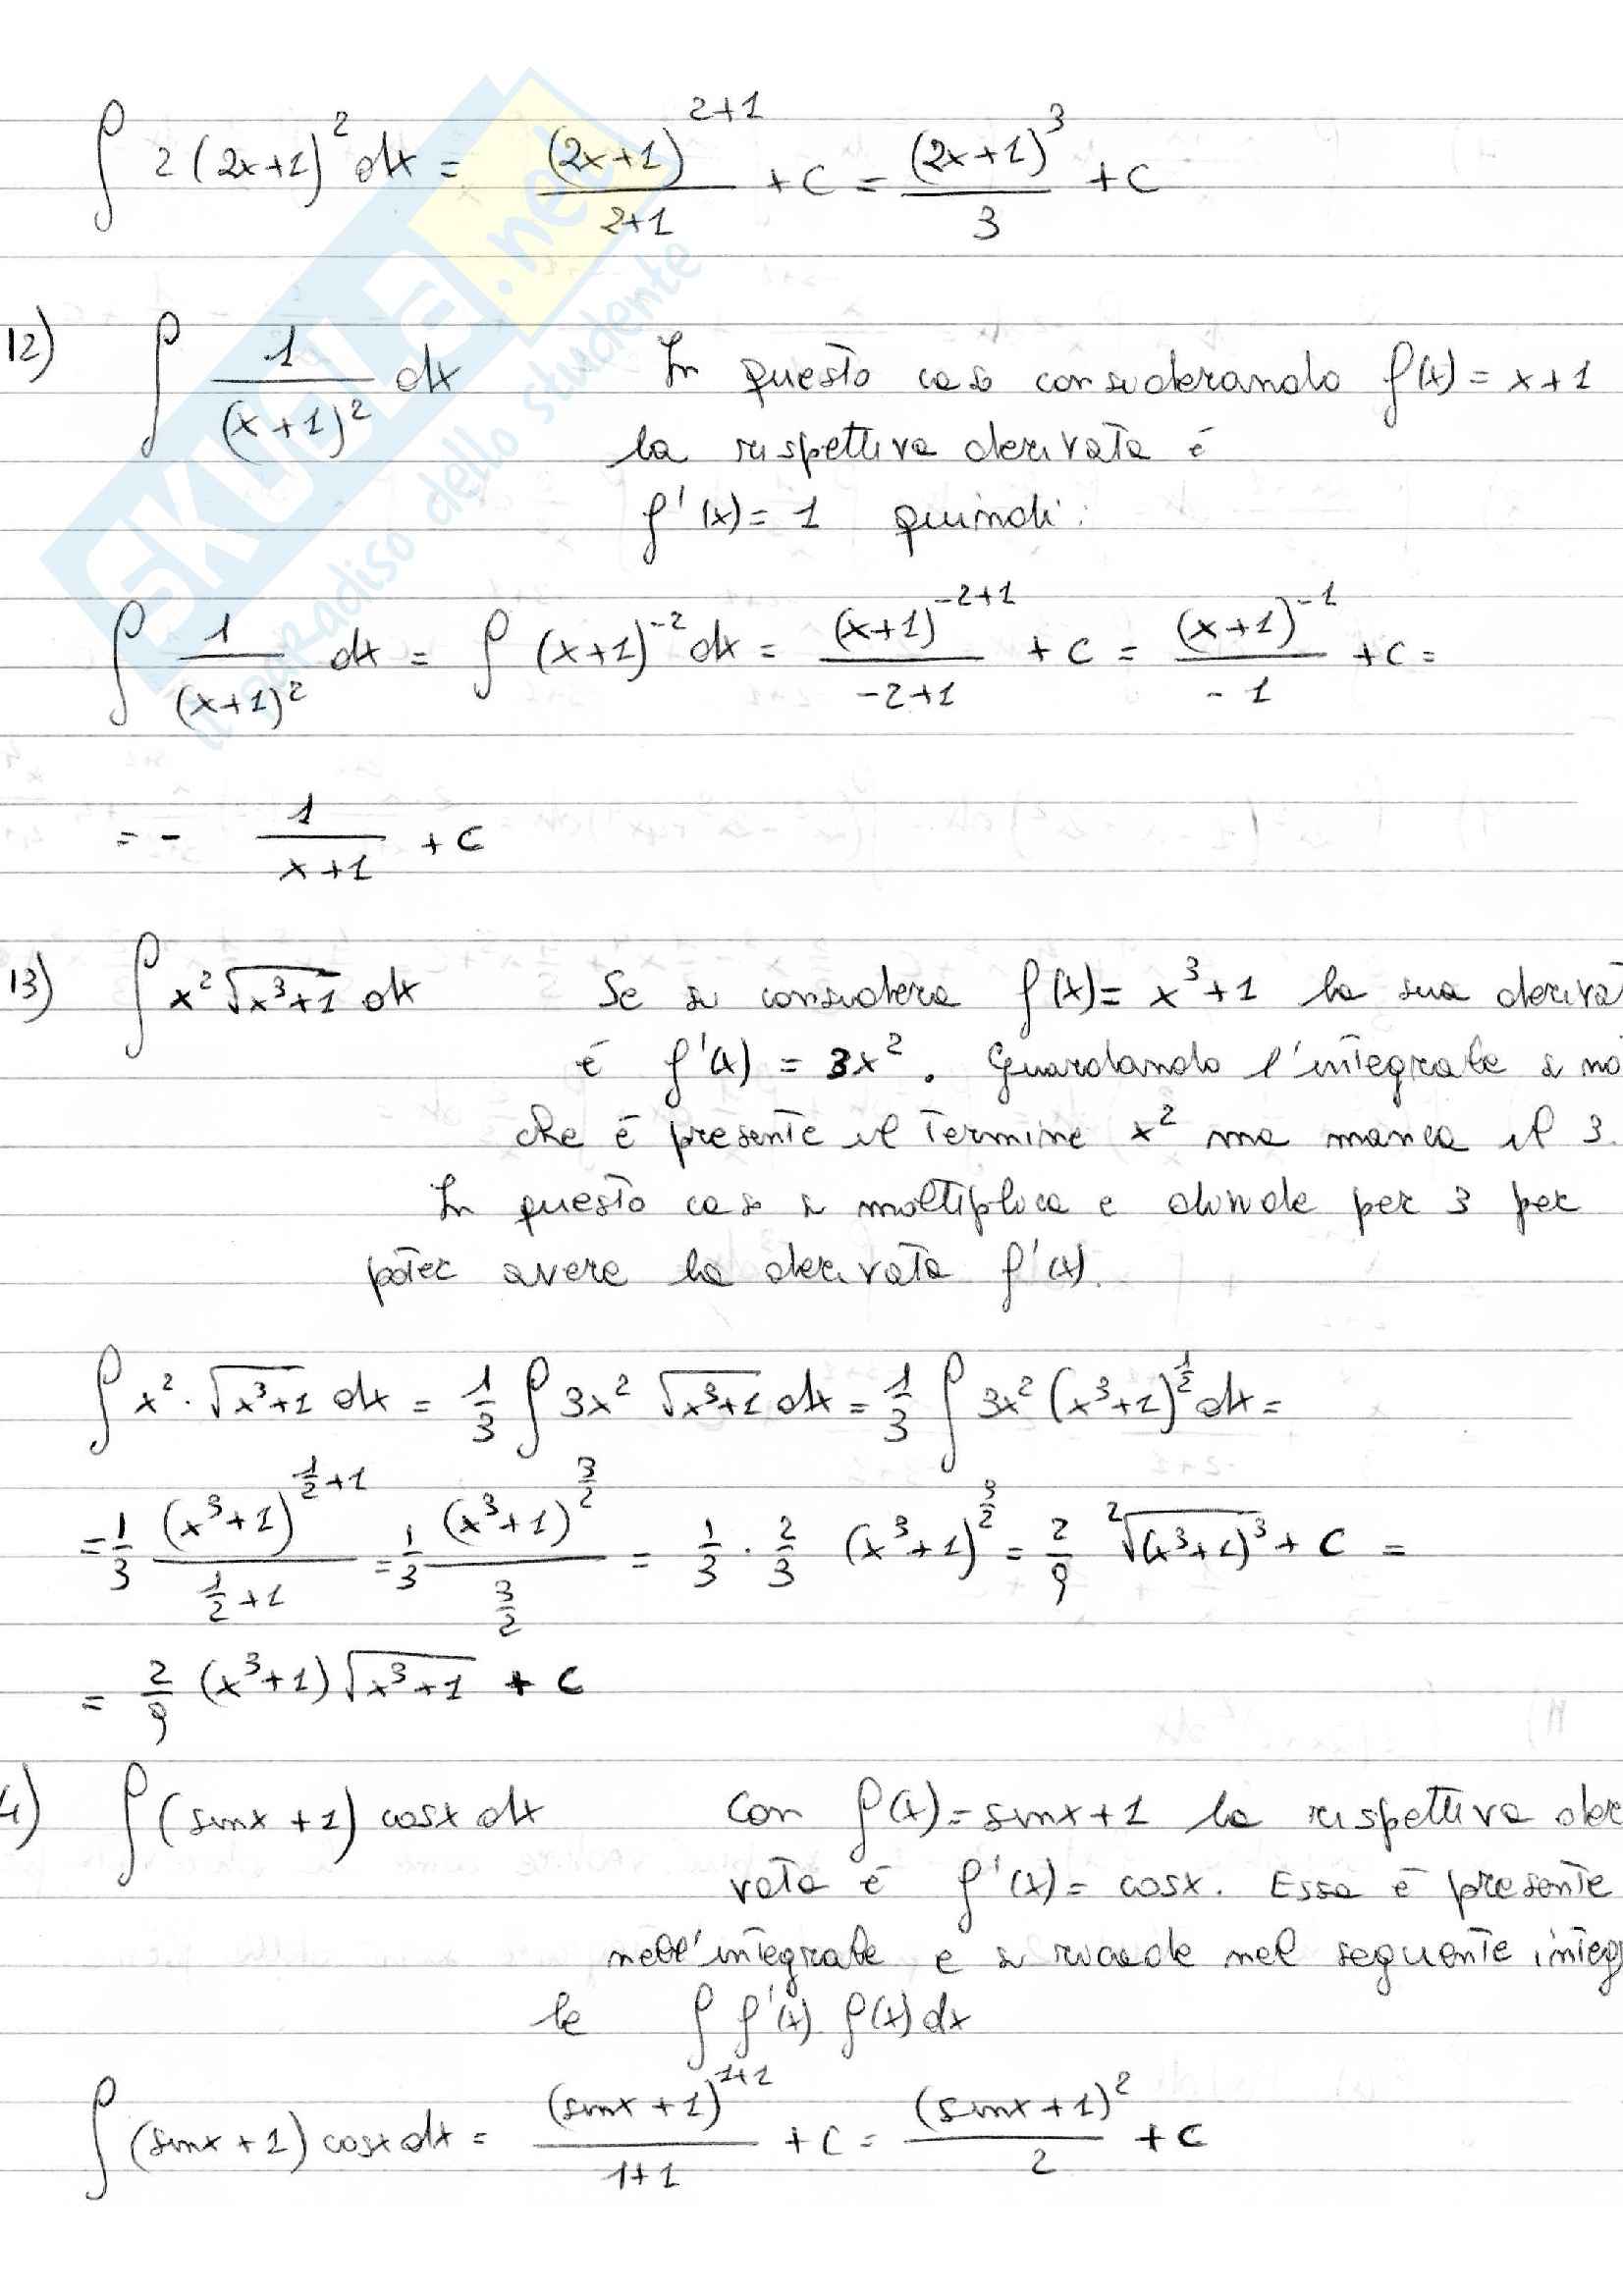 ∫ 2(2x+1)² dx = (2x+1)^(2+1)/(2+1) + c = (2x+1)³/3 + c
SKUOLA.net
il paradiso dello studente
12) ∫ 1/(x+1)² dx In questo caso considerando f(x) = x+1
la rispettiva derivata è
f'(x) = 1 quindi:
∫ 1/(x+1)² dx = ∫ (x+1)⁻² dx = (x+1)^(-2+1)/(-2+1) + c = (x+1)⁻¹/(-1) + c =
= - 1/(x+1) + c
13) ∫ x² √(x³+1) dx Se si considera f(x) = x³+1 la sua deriva
è f'(x) = 3x². Guardando l'integrale si no
che è presente il termine x² ma manca il 3.
In questo caso si moltiplica e divide per 3 per
poter avere la derivata f'(x).
∫ x² · √(x³+1) dx = 1/3 ∫ 3x² √(x³+1) dx = 1/3 ∫ 3x² (x³+1)^(1/2) dx =
= 1/3 (x³+1)^(1/2+1)/(1/2+1) = 1/3 (x³+1)^(3/2)/(3/2) = 1/3 · 2/3 (x³+1)^(3/2) = 2/9 ²√(x³+1)³ + c =
= 2/9 (x³+1) √(x³+1) + c
4) ∫ (sinx + 1) cosx dx Con f(x) = sinx + 1 la rispettiva der
vata è f'(x) = cosx. Essa è presente
nell'integrale e si ricade nel seguente integ
le ∫ f'(x) · f(x) dx
∫ (sinx + 1) cosx dx = (sinx + 1)^(1+1)/(1+1) + c = (sinx + 1)²/2 + c